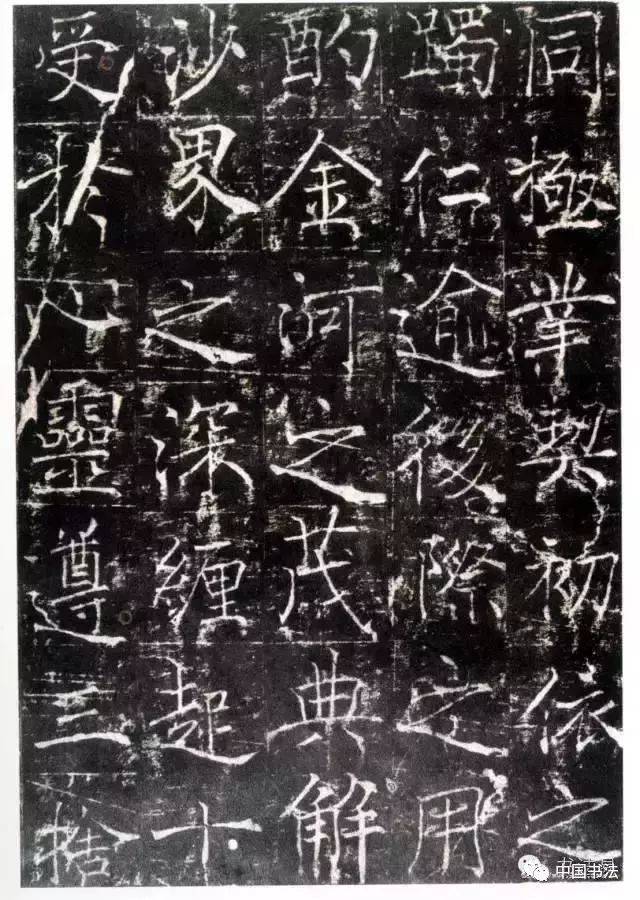 同極業契初依之
躅仁逾後際之用
酌金河之茂典解
沙界之深纏起十
受於八靈遵三
中国书法